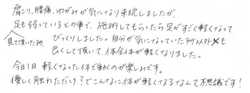 肩こり、腰痛、ゆがみが気になり来院しましたが、
足も弱っているとの事で、施術してもらったら足がすごく軽くなって
びっくりしました。自分が気になっていた所以外も
見て頂いた所
良くして頂いて体全体が軽くなりました。
今日1日軽くなった体で過ごすのが楽しみです。
優しく触れただけ？でこんなに体が軽くなるなんて不思議です！